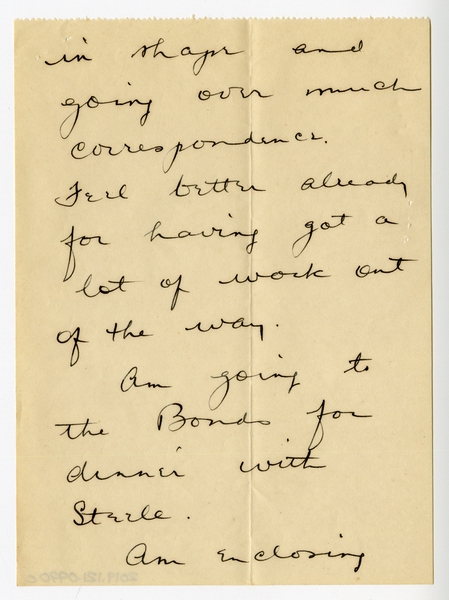 in shape and
going over much
correspondence.
Feel better already
for having got a
lot of work out
of the way.
Am going to
the Bonds for
dinner with
Steele.
Am enclosing